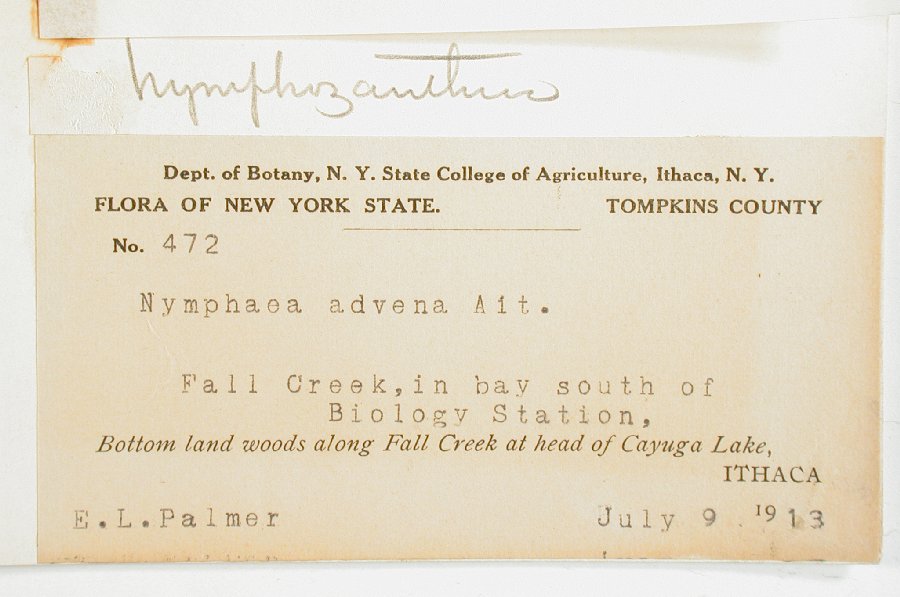 Nymphozanthus
Dept. of Botany, N. Y. State College of Agriculture, Ithaca, N. Y.
FLORA OF NEW YORK STATE. TOMPKINS COUNTY
No. 472
Nymphaea advena Ait.
Fall Creek,in bay south of
Biology Station,
Bottom land woods along Fall Creek at head of Cayuga Lake,
ITHACA
E.L.Palmer July 9 1913